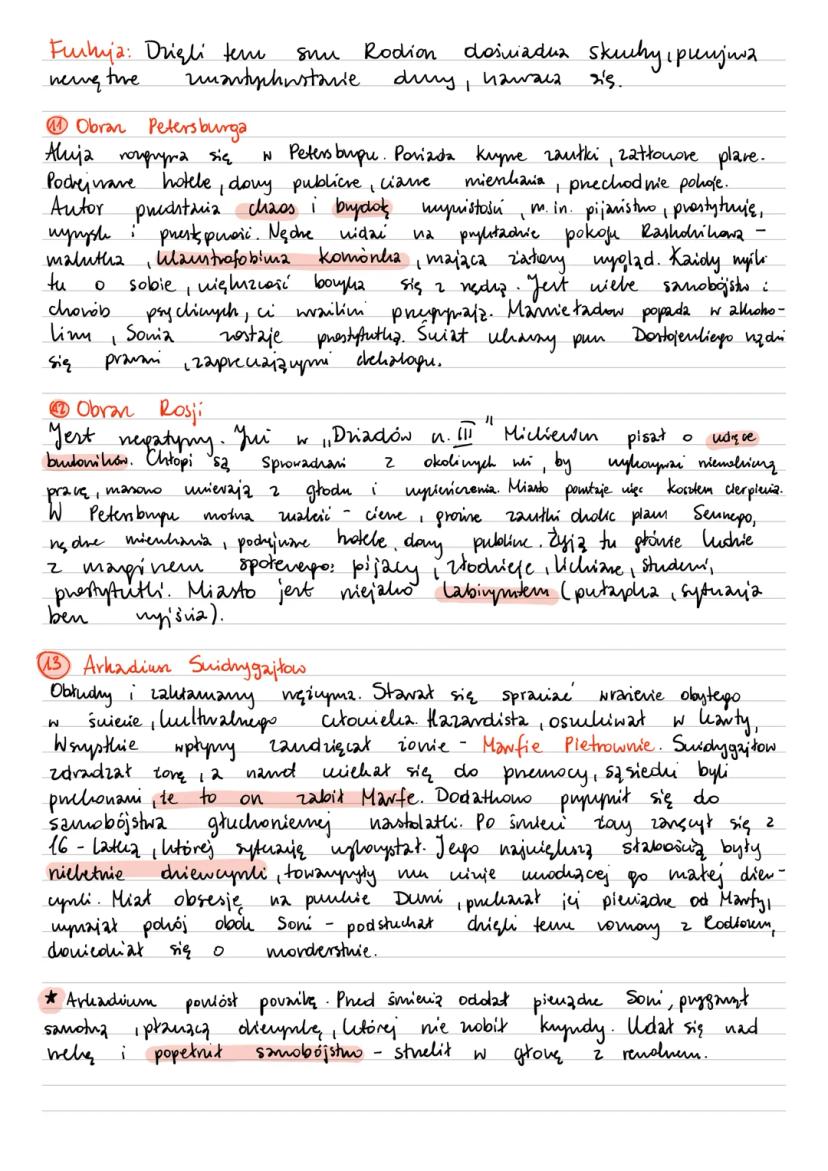 Funkcja: Dzięki temu snu Rodion doświadcza skruchy, przeżywa
wewnętrzne zmartwychwstanie duszy, nawraca się.
11 Obraz Petersburga
Akcja rozgrywa się w Petersburgu. Posiada kręte zaułki, zatłoczone place.
Podejrzane hotele, domy publiczne, ciasne mieszkania, przechodnie pokoje.
Autor przedstawia chaos i brzydotę rzeczywistości, m.in. pijaństwo, prostytucję,
wyzysk i przestępczość. Nędzę widać na przykładzie pokoju Raskolnikowa -
malutka, klaustrofobiczna komórka, mająca żałosny wygląd. Każdy myśli
tu o sobie, większość boryka się z nędzą. Jest wiele samobójstw i
chorób psychicznych, ci wrażliwi przegrywają. Marmieładow popada w alkoho-
lizm, Sonia zostaje prostytutką. Świat ukazany przez Dostojewskiego rządzi
się prawami, zaprzeczającymi dekalogu.
12 Obraz Rosji
Jest negatywny. Już w „Dziadów cz. III" Mickiewicz pisał o
budowników. Chłopi są sprowadzani z okolicznych wsi, by wykonywać niewolniczą
pracę, masowo umierają z głodu i wycieńczenia. Miasto powstaje więc kosztem cierpienia.
W Petersburgu można znaleźć - ciemne, groźne zaułki okolic placu Siennego,
nędzne mieszkania, podejrzane hotele, domy publiczne. Żyją tu głównie ludzie
z marginesu społecznego: pijacy, złodzieje, lichwiarze, studenci,
prostytutki. Miasto jest niejako labiryntem (pułapka, sytuacja
bez wyjścia).
13 Arkadiusz Swidrygajłow
Obłudny i zakłamany mężczyzna. Starał się sprawiać wrażenie obytego
w świecie, kulturalnego człowieka. Hazardzista, oszukiwał w karty,
Wszystkie wpływy zawdzięczał żonie - Marfie Pietrownie. Swidrygajłow
zdradzał żonę, a nawet uciekał się do przemocy, sąsiedzi byli
przekonani, że to on zabił Marfę. Dodatkowo przyczynił się do
samobójstwa głuchoniemej nastolatki. Po śmierci żony zaręczył się z
16-latką, której sytuację wykorzystał. Jego największą słabością były
nieletnie dziewczynki, towarzyszyły mu wizje uwodzącej go małej dziew-
czynki. Miał obsesję na punkcie Duni, przekazał jej pieniądze od Marfy,
wynajął pokój obok Soni - podsłuchał dzięki temu rozmowy z Rodionem,
dowiedział się o morderstwie.
★ Arkadiusz poniósł porażkę. Przed śmiercią oddał pieniądze Soni, przygarnął
samotną, płaczącą dziewczynkę, której nie zrobił krzywdy. Udał się nad
rzekę i popełnił samobójstwo - strzelił w głowę z rewolweru.